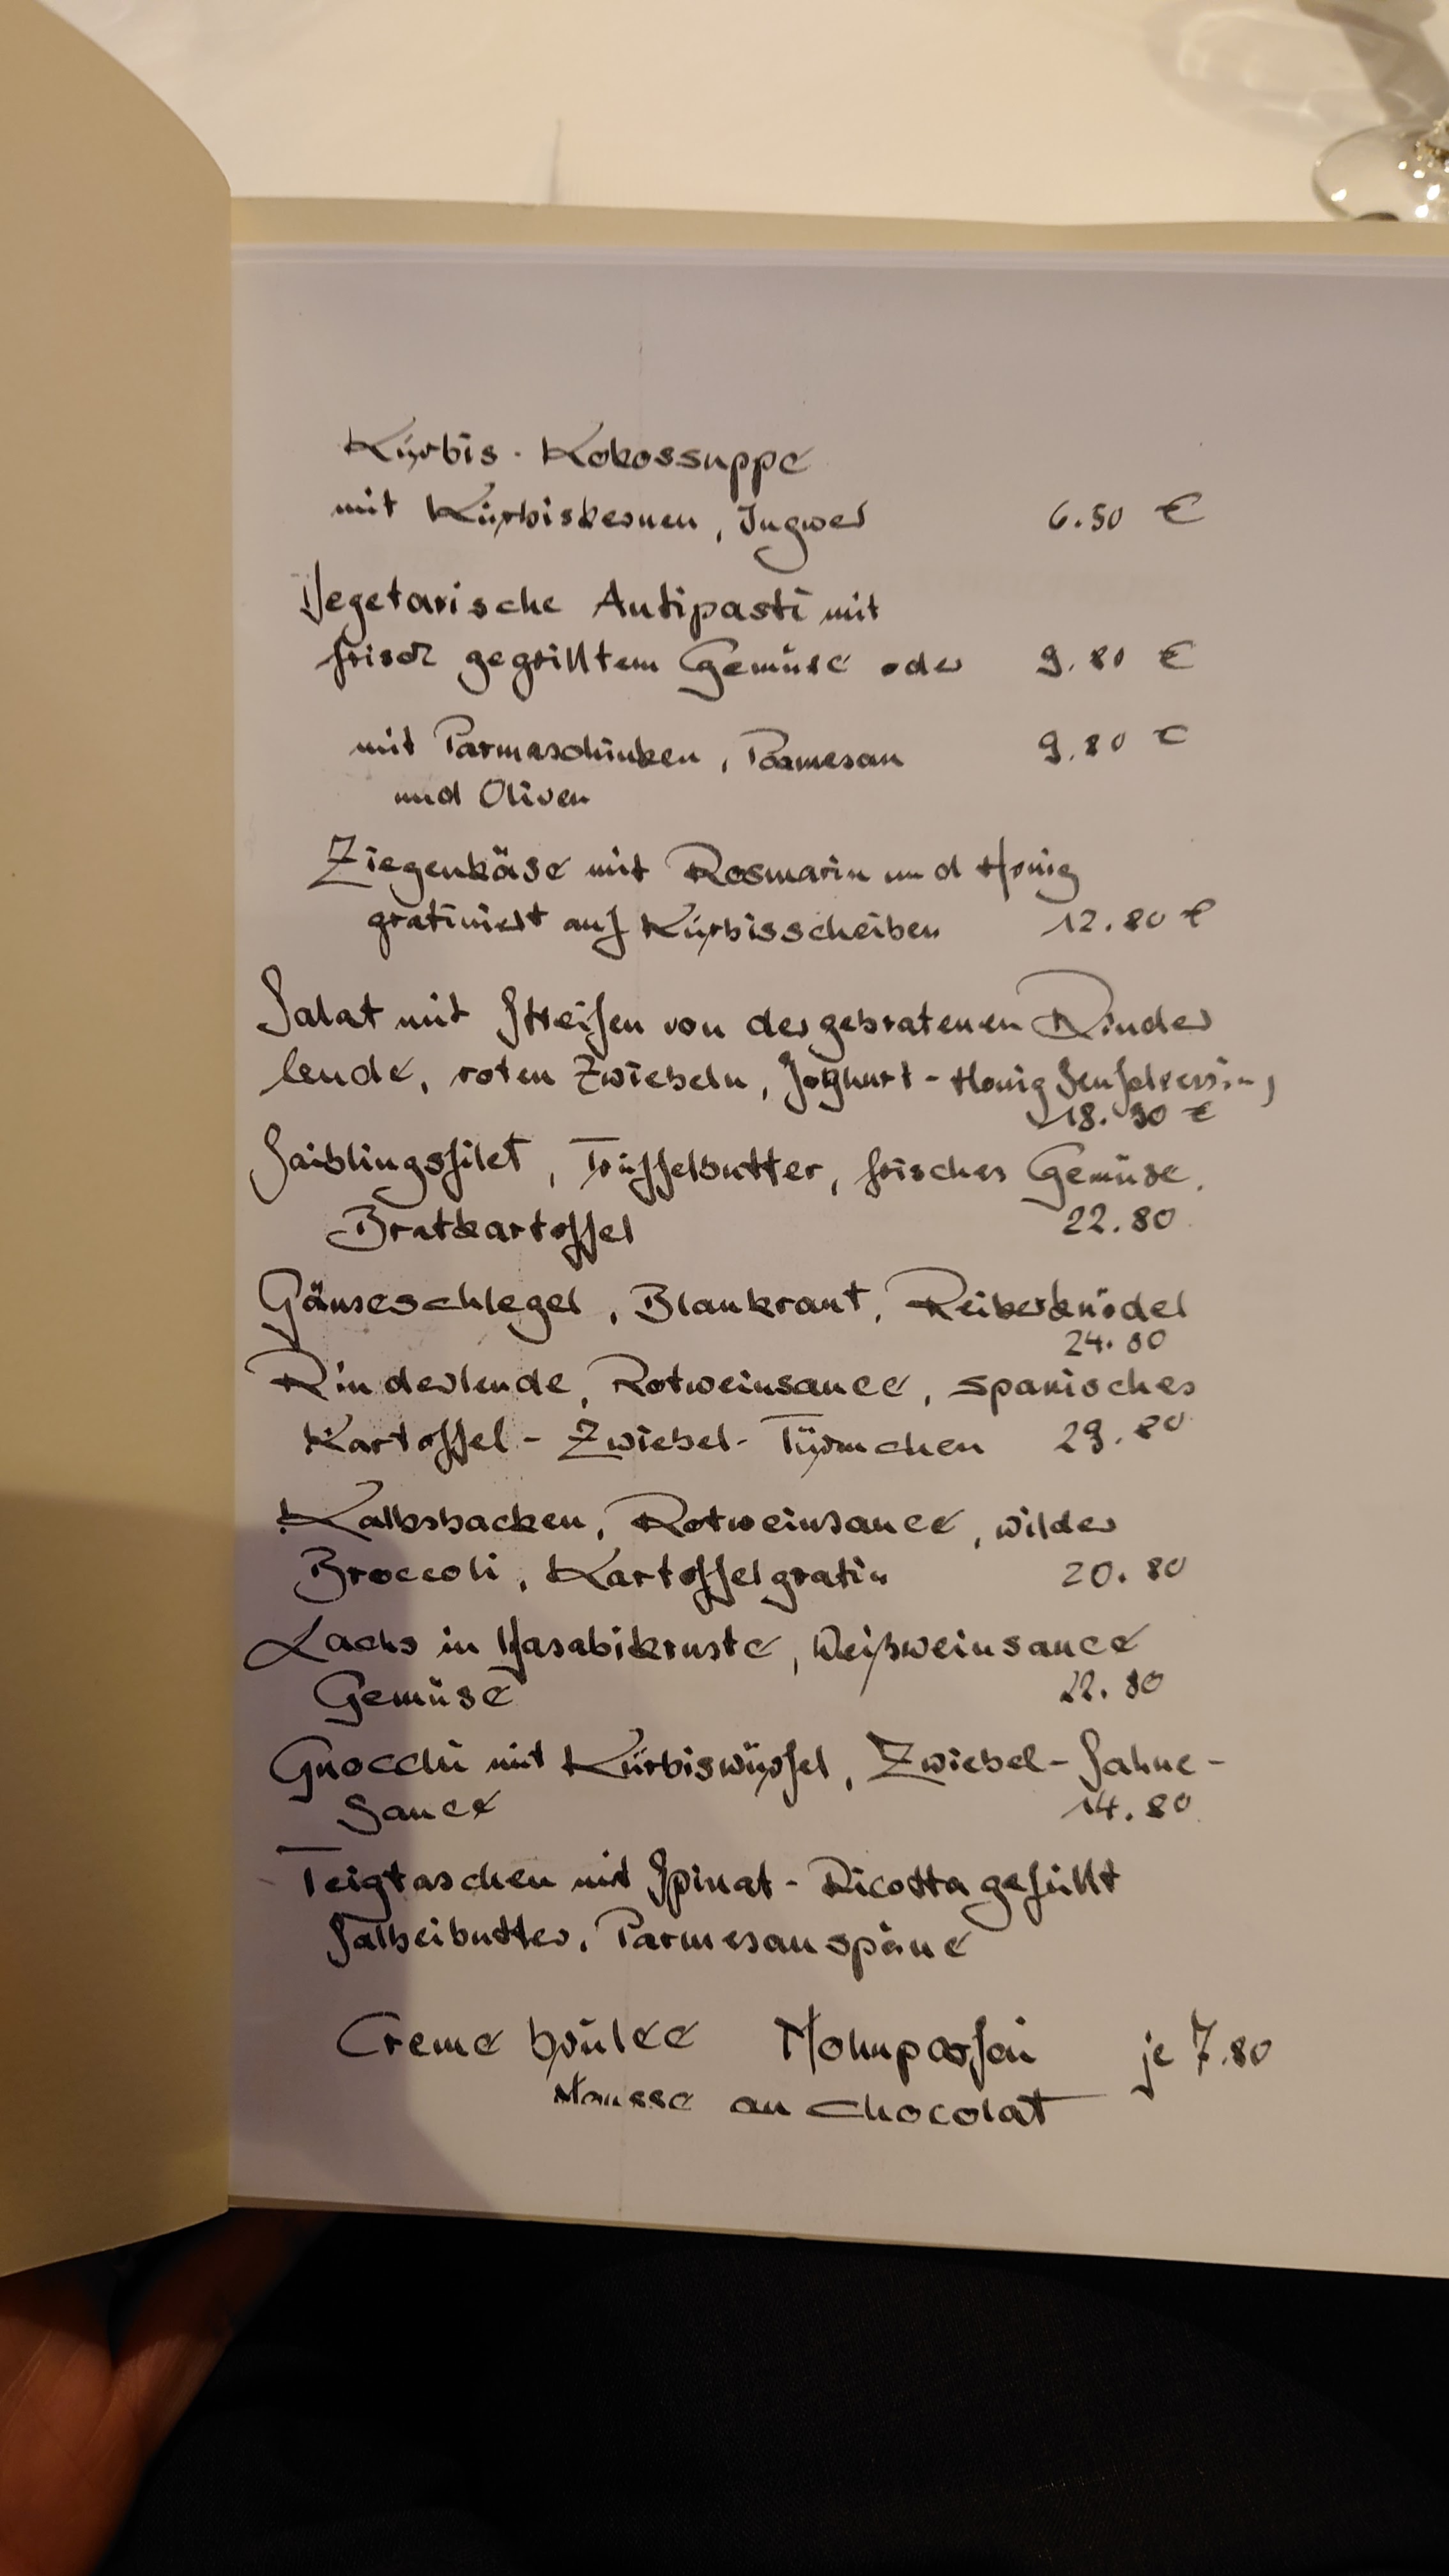 Kürbis - Kokossuppe
mit Kürbiskernen, Ingwer 6.50 €
Vegetarische Antipasti mit
frisch gegrilltem Gemüse oder 9.80 €
mit Parmaschinken, Parmesan 9.80 €
und Oliven
Ziegenkäse mit Rosmarin und Honig
gratiniert auf Kürbisscheiben 12.80 €
Salat mit Streifen von der gebratenen Rinder
lende, roten Zwiebeln, Joghurt - Honig Senfdressing
18.90 €
Saiblingsfilet, Trüffelbutter, frisches Gemüse,
Bratkartoffel 22.80
Gänseschlegel, Blaukraut, Reiberknödel
24.80
Rinderlende, Rotweinsauce, spanisches
Kartoffel - Zwiebel - Türmchen 29.80
Kalbsbacken, Rotweinsauce, wilder
Broccoli, Kartoffelgratin 20.80
Lachs in Wasabikruste, Weißweinsauce
Gemüse 22.80
Gnocchi mit Kürbiswürfel, Zwiebel - Sahne -
Sauce 14.80
Teigtaschen mit Spinat - Ricotta gefüllt
Salbeibutter, Parmesanspäne
Creme brûlée Mohnparfai je 7.80
Mousse au chocolat